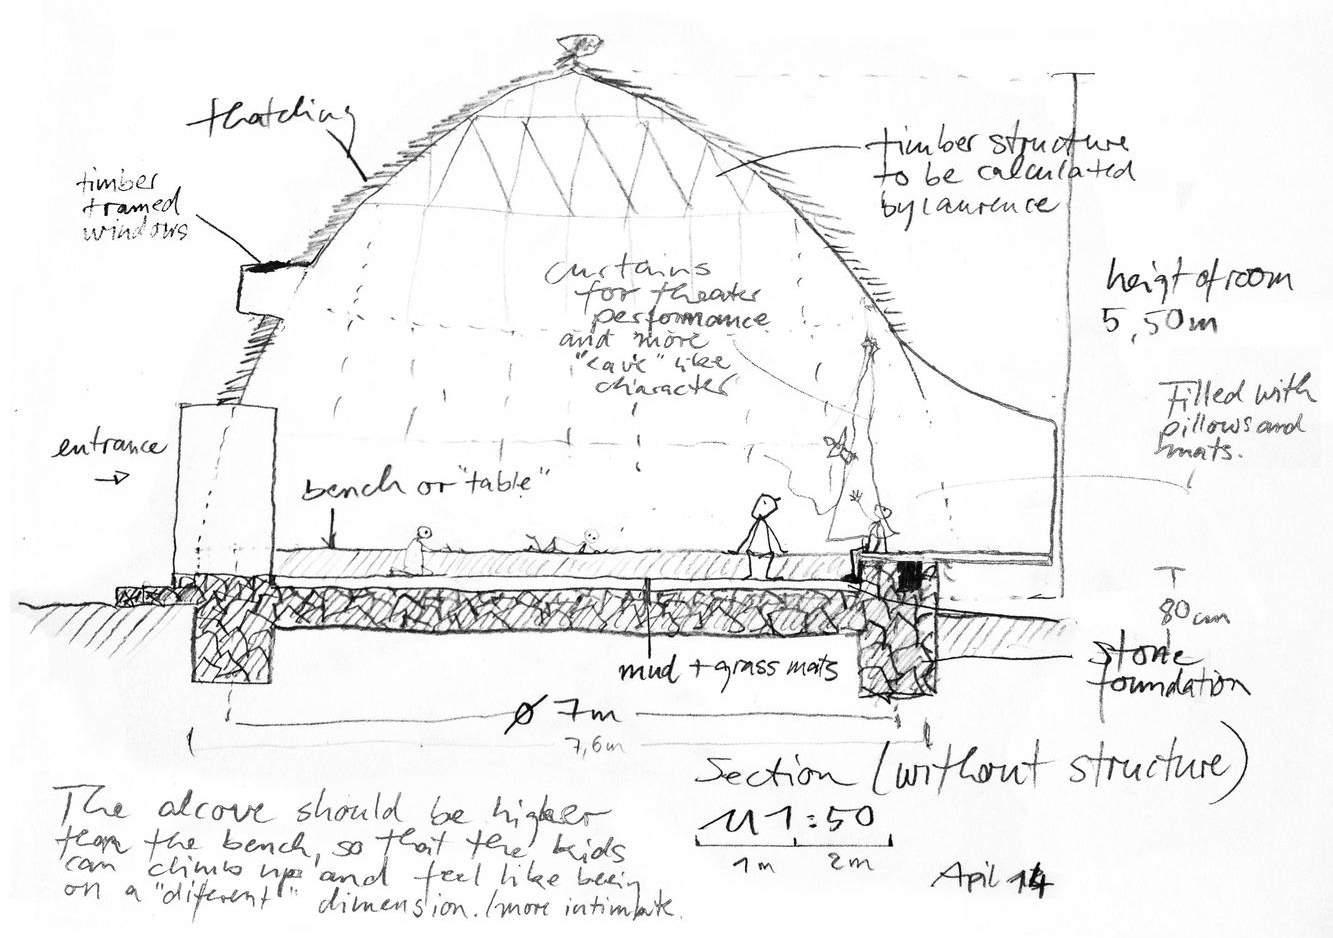 thatching
timber
framed
windows
timber structure
to be calculated
by laurence
curtains
for theater
performance
and more
"cave" like
character
heigt of room
5,50m
Filled with
pillows and
mats.
entrance
bench or "table"
80cm
mud + grass mats
stone
foundation
ø 7m
7,6m
Section (without structure)
M 1:50
1m 2m
April 14
The alcove should be higher
than the bench, so that the kids
can climb up and feel like being
on a "different" dimension. / more intimate.